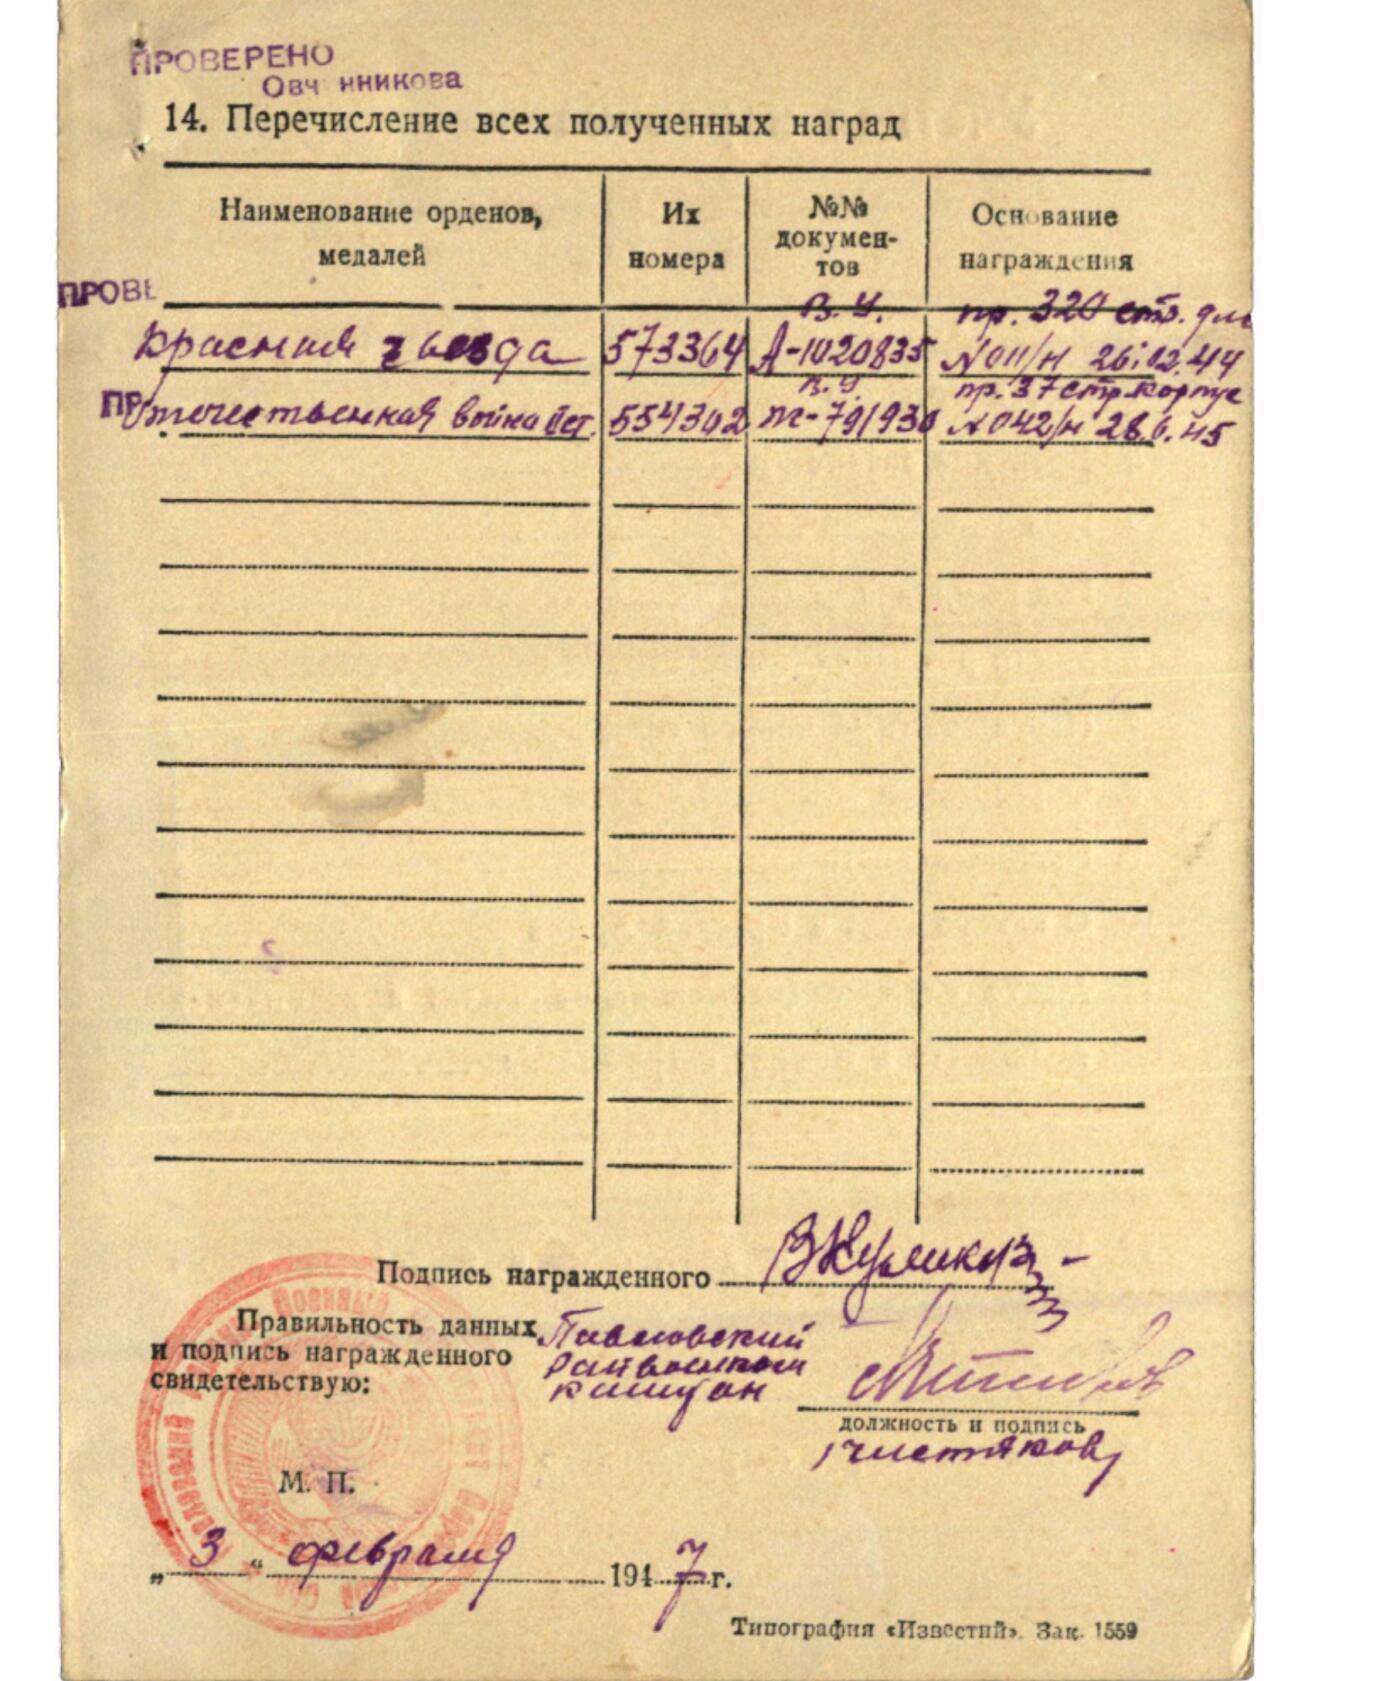 ПРОВЕРЕНО
Овч нникова
14. Перечисление всех полученных наград
Наименование орденов, медалей
Их номера
№№ докумен-тов
Основание награждения
ПРОВЕ
в. ч. пр. 320 стр. див
Красная звезда 573364 А-1020835 №011/н 26.02.44
в. ч. пр. 37 стр. корпус
ПР
Отечественная война II ст. 554302 Ж-791930 №042/н 28.6.45
Подпись награжденного ВКуликов
Правильность данных
и подпись награжденного
свидетельствую:
Павловский
Райвоенком
капитан
должность и подпись
/Чистяков/
М. П.
„ 3 " февраля 1947 г.
Типография «Известий». Зак. 1559